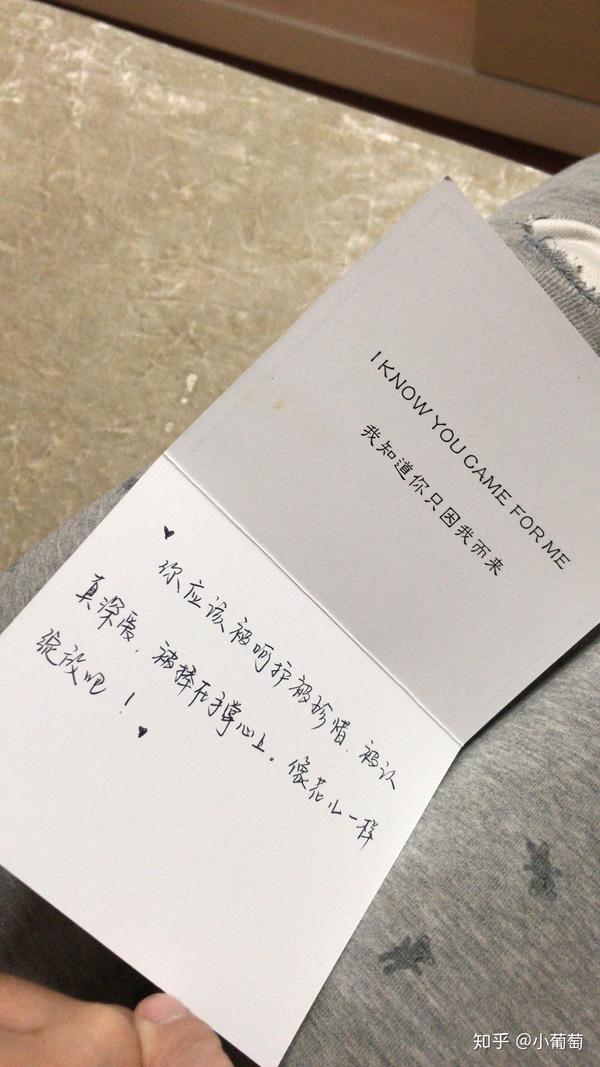 I KNOW YOU CAME FOR ME
我知道你只因我而来
♥
你应该被呵护被珍惜、被认
真深爱，被捧在手掌心上。像花儿一样
绽放吧！
♥
知乎 @小葡萄